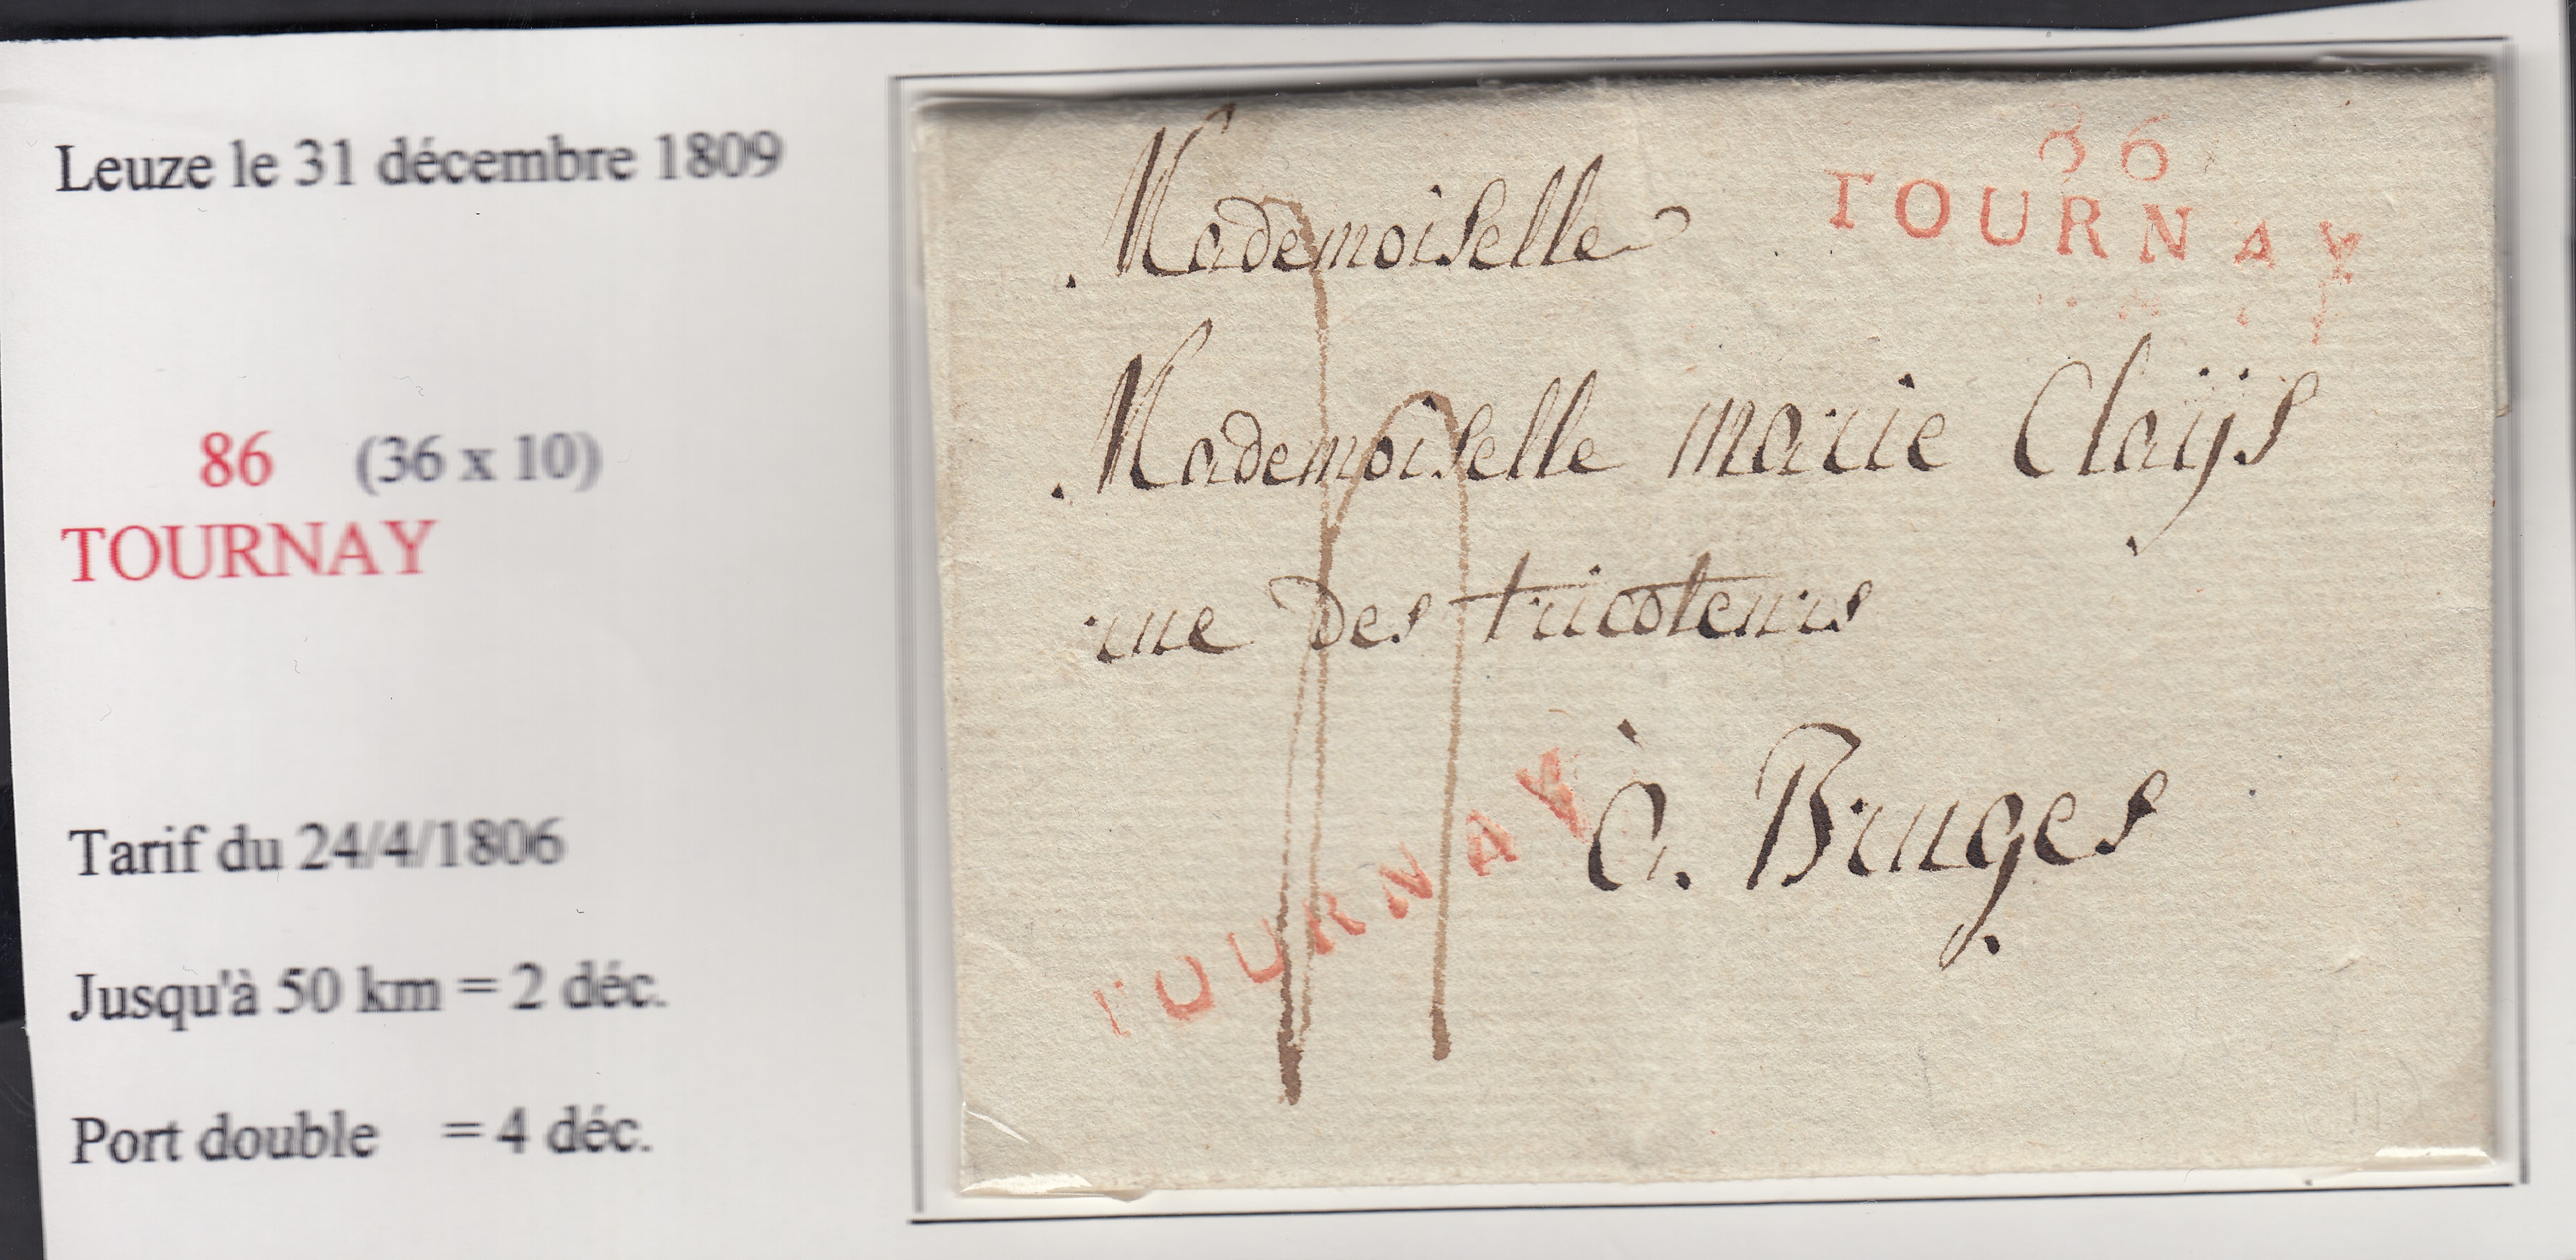 Leuze le 31 décembre 1809
86 (36 x 10)
TOURNAY
Tarif du 24/4/1806
Jusqu'à 50 km = 2 déc.
Port double = 4 déc.
86
TOURNAY
Mademoiselle
Mademoiselle marie Claÿs
rue Des tricoteurs
à. Bruges
TOURNAY